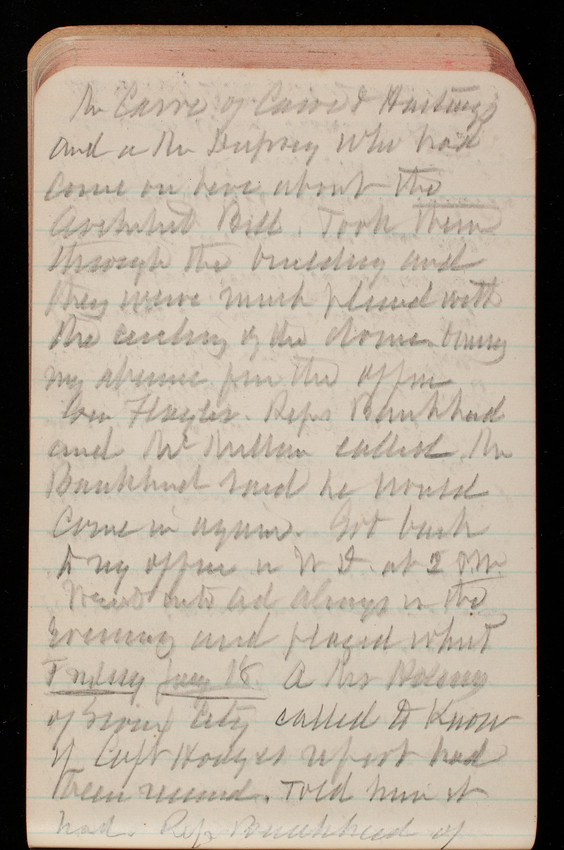 Mr Carre of Carre & Hastings
and a Mr Dempsey who had
come on here about the
Architect Bill. Took them
through the building and
they were much pleased with
the ceiling of the dome. During
my absence from the office
Gen Flagler. Reps Bankhead
and called Mr
Bankhead said he would
come in again. Got back
to my office in W D. at 2 P.M.
Went out always in the
evening and played whist
Friday Jany 18. A Mr
of Sioux City called to know
if Capt Hodges report had
been received. Told him it
had. Rep Bankhead of